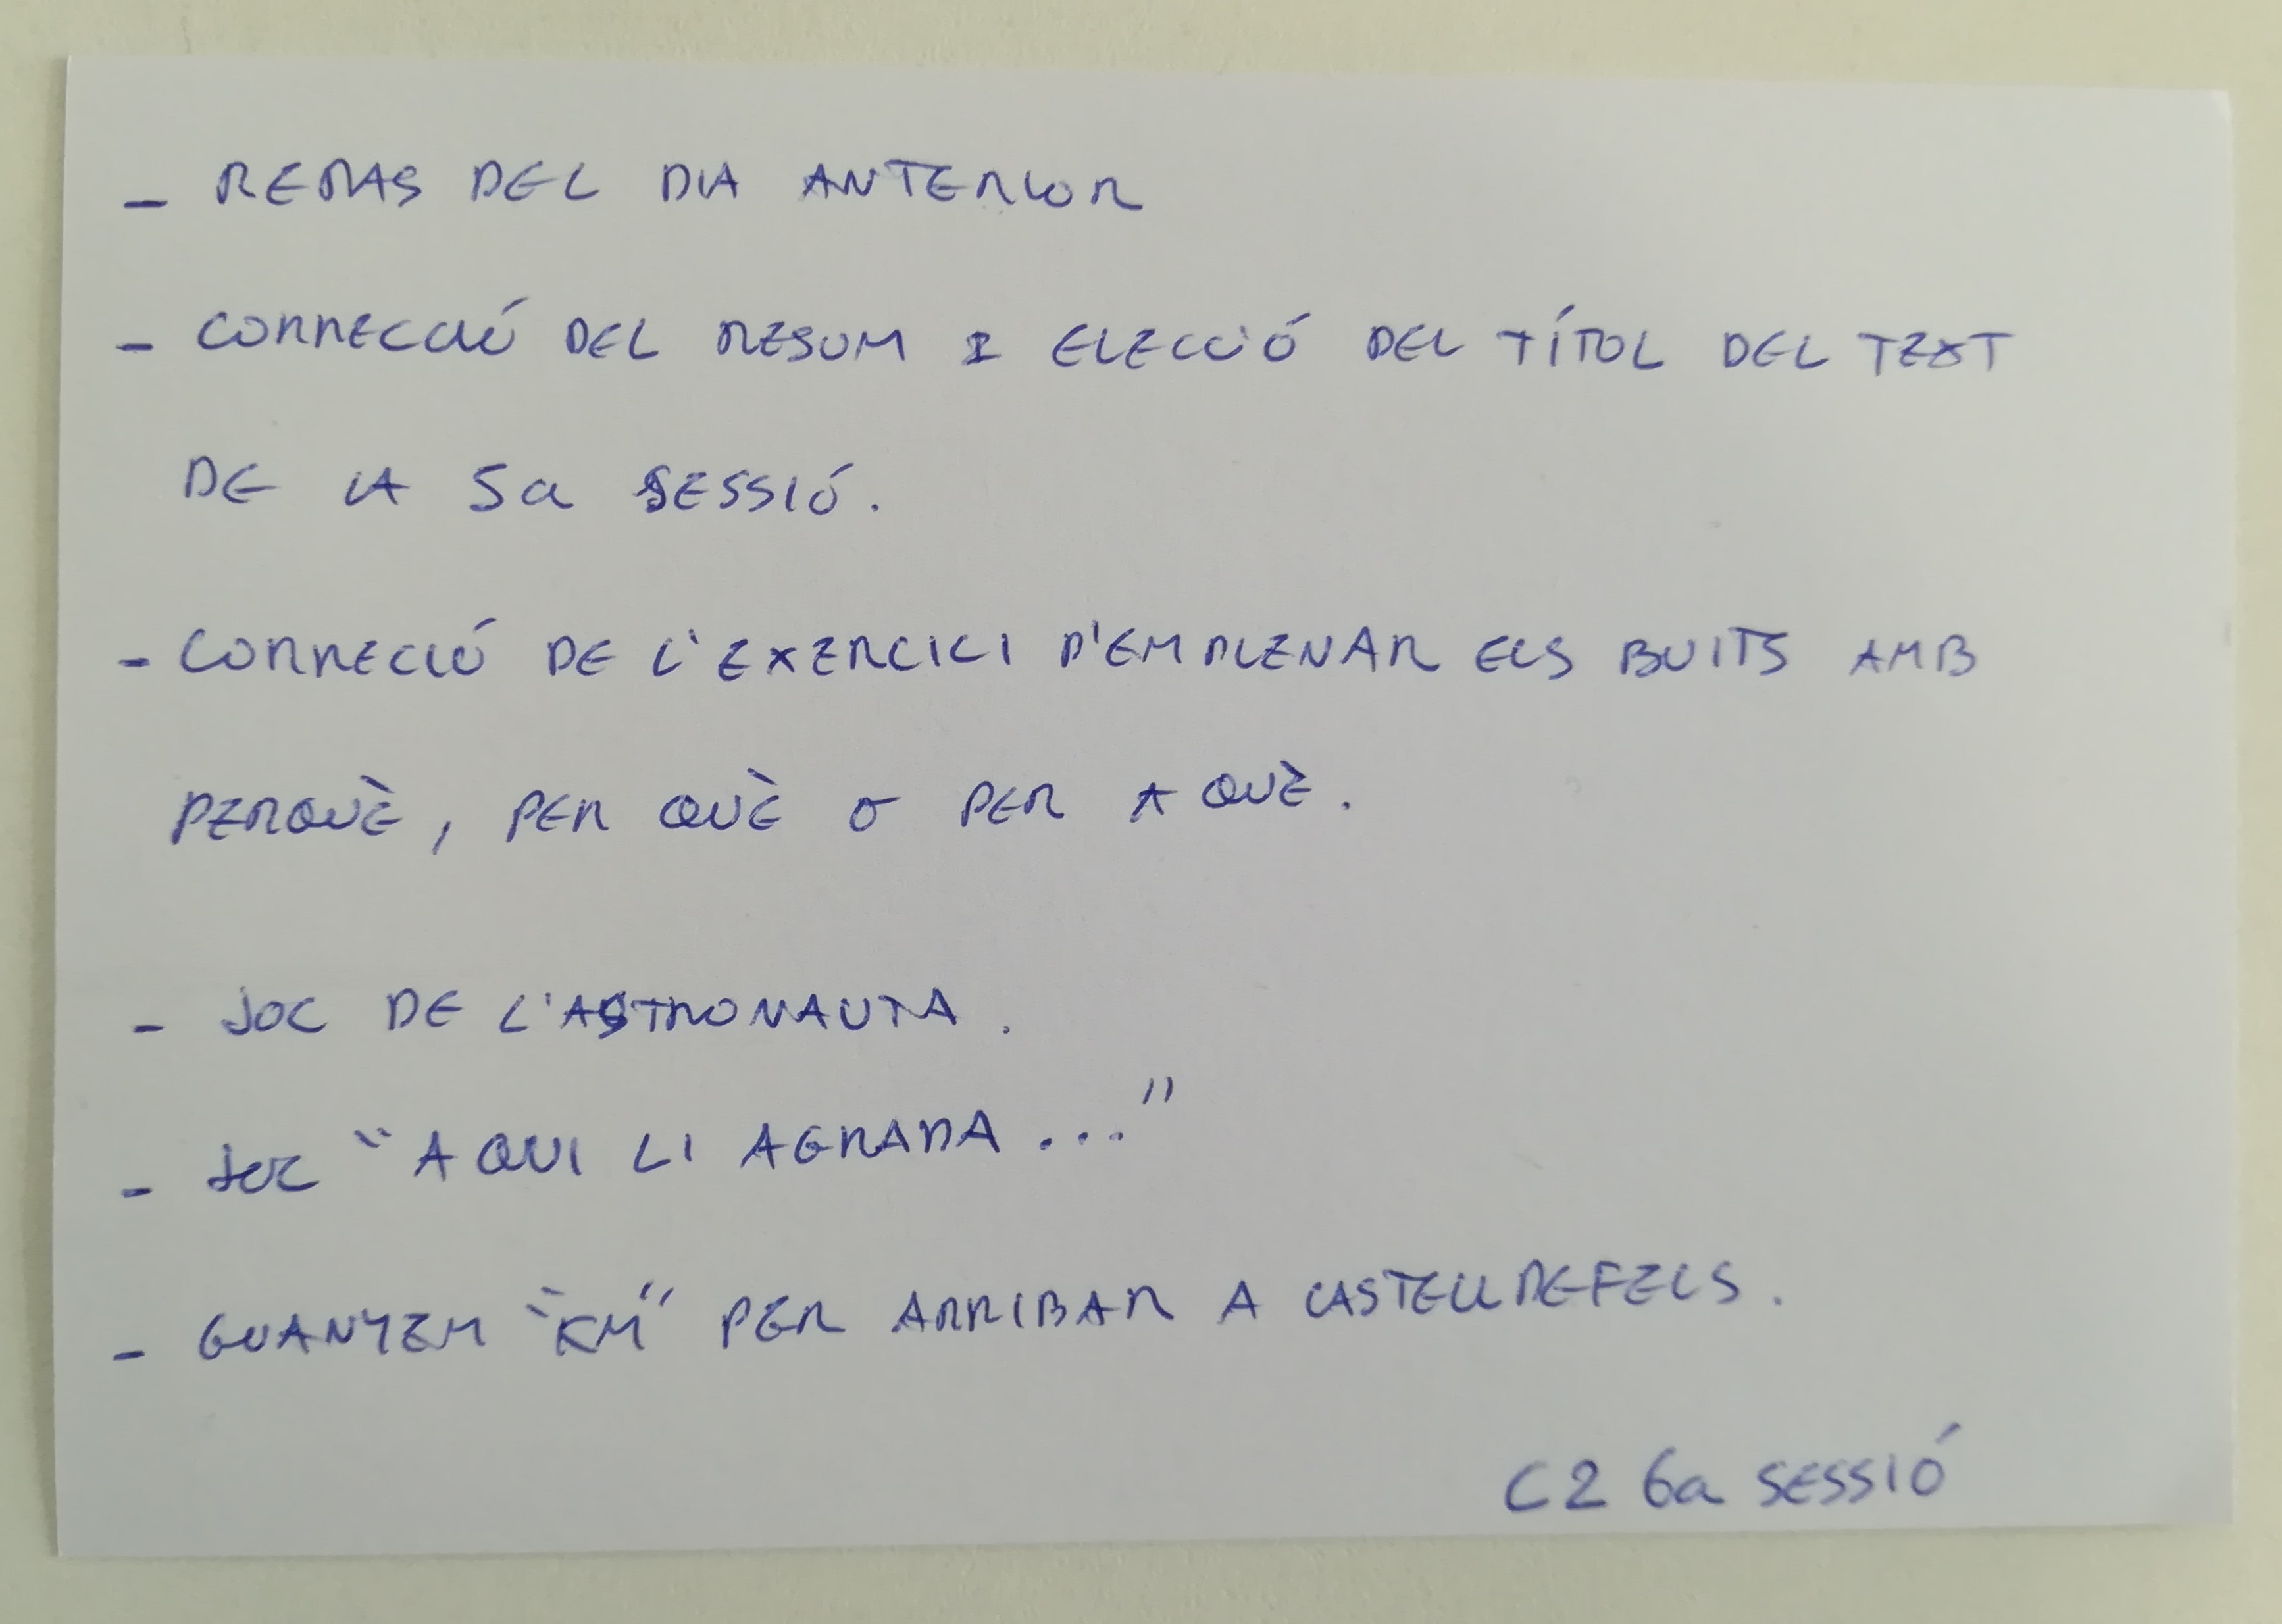 - REPAS DEL DIA ANTERIOR
- CORRECCIÓ DEL RESUM I ELECCIÓ DEL TÍTOL DEL TEXT
DE LA 5a SESSIÓ.
- CORRECIÓ DE L'EXERCICI D'EMPLENAR ELS BUITS AMB
PERQUÈ, PER QUÈ O PER A QUÈ.
- JOC DE L'ASTRONAUTA.
- JOC "A QUI LI AGRADA ..."
- GUANYEM "KM" PER ARRIBAR A CASTELLDEFELS.
C2 6a SESSIÓ